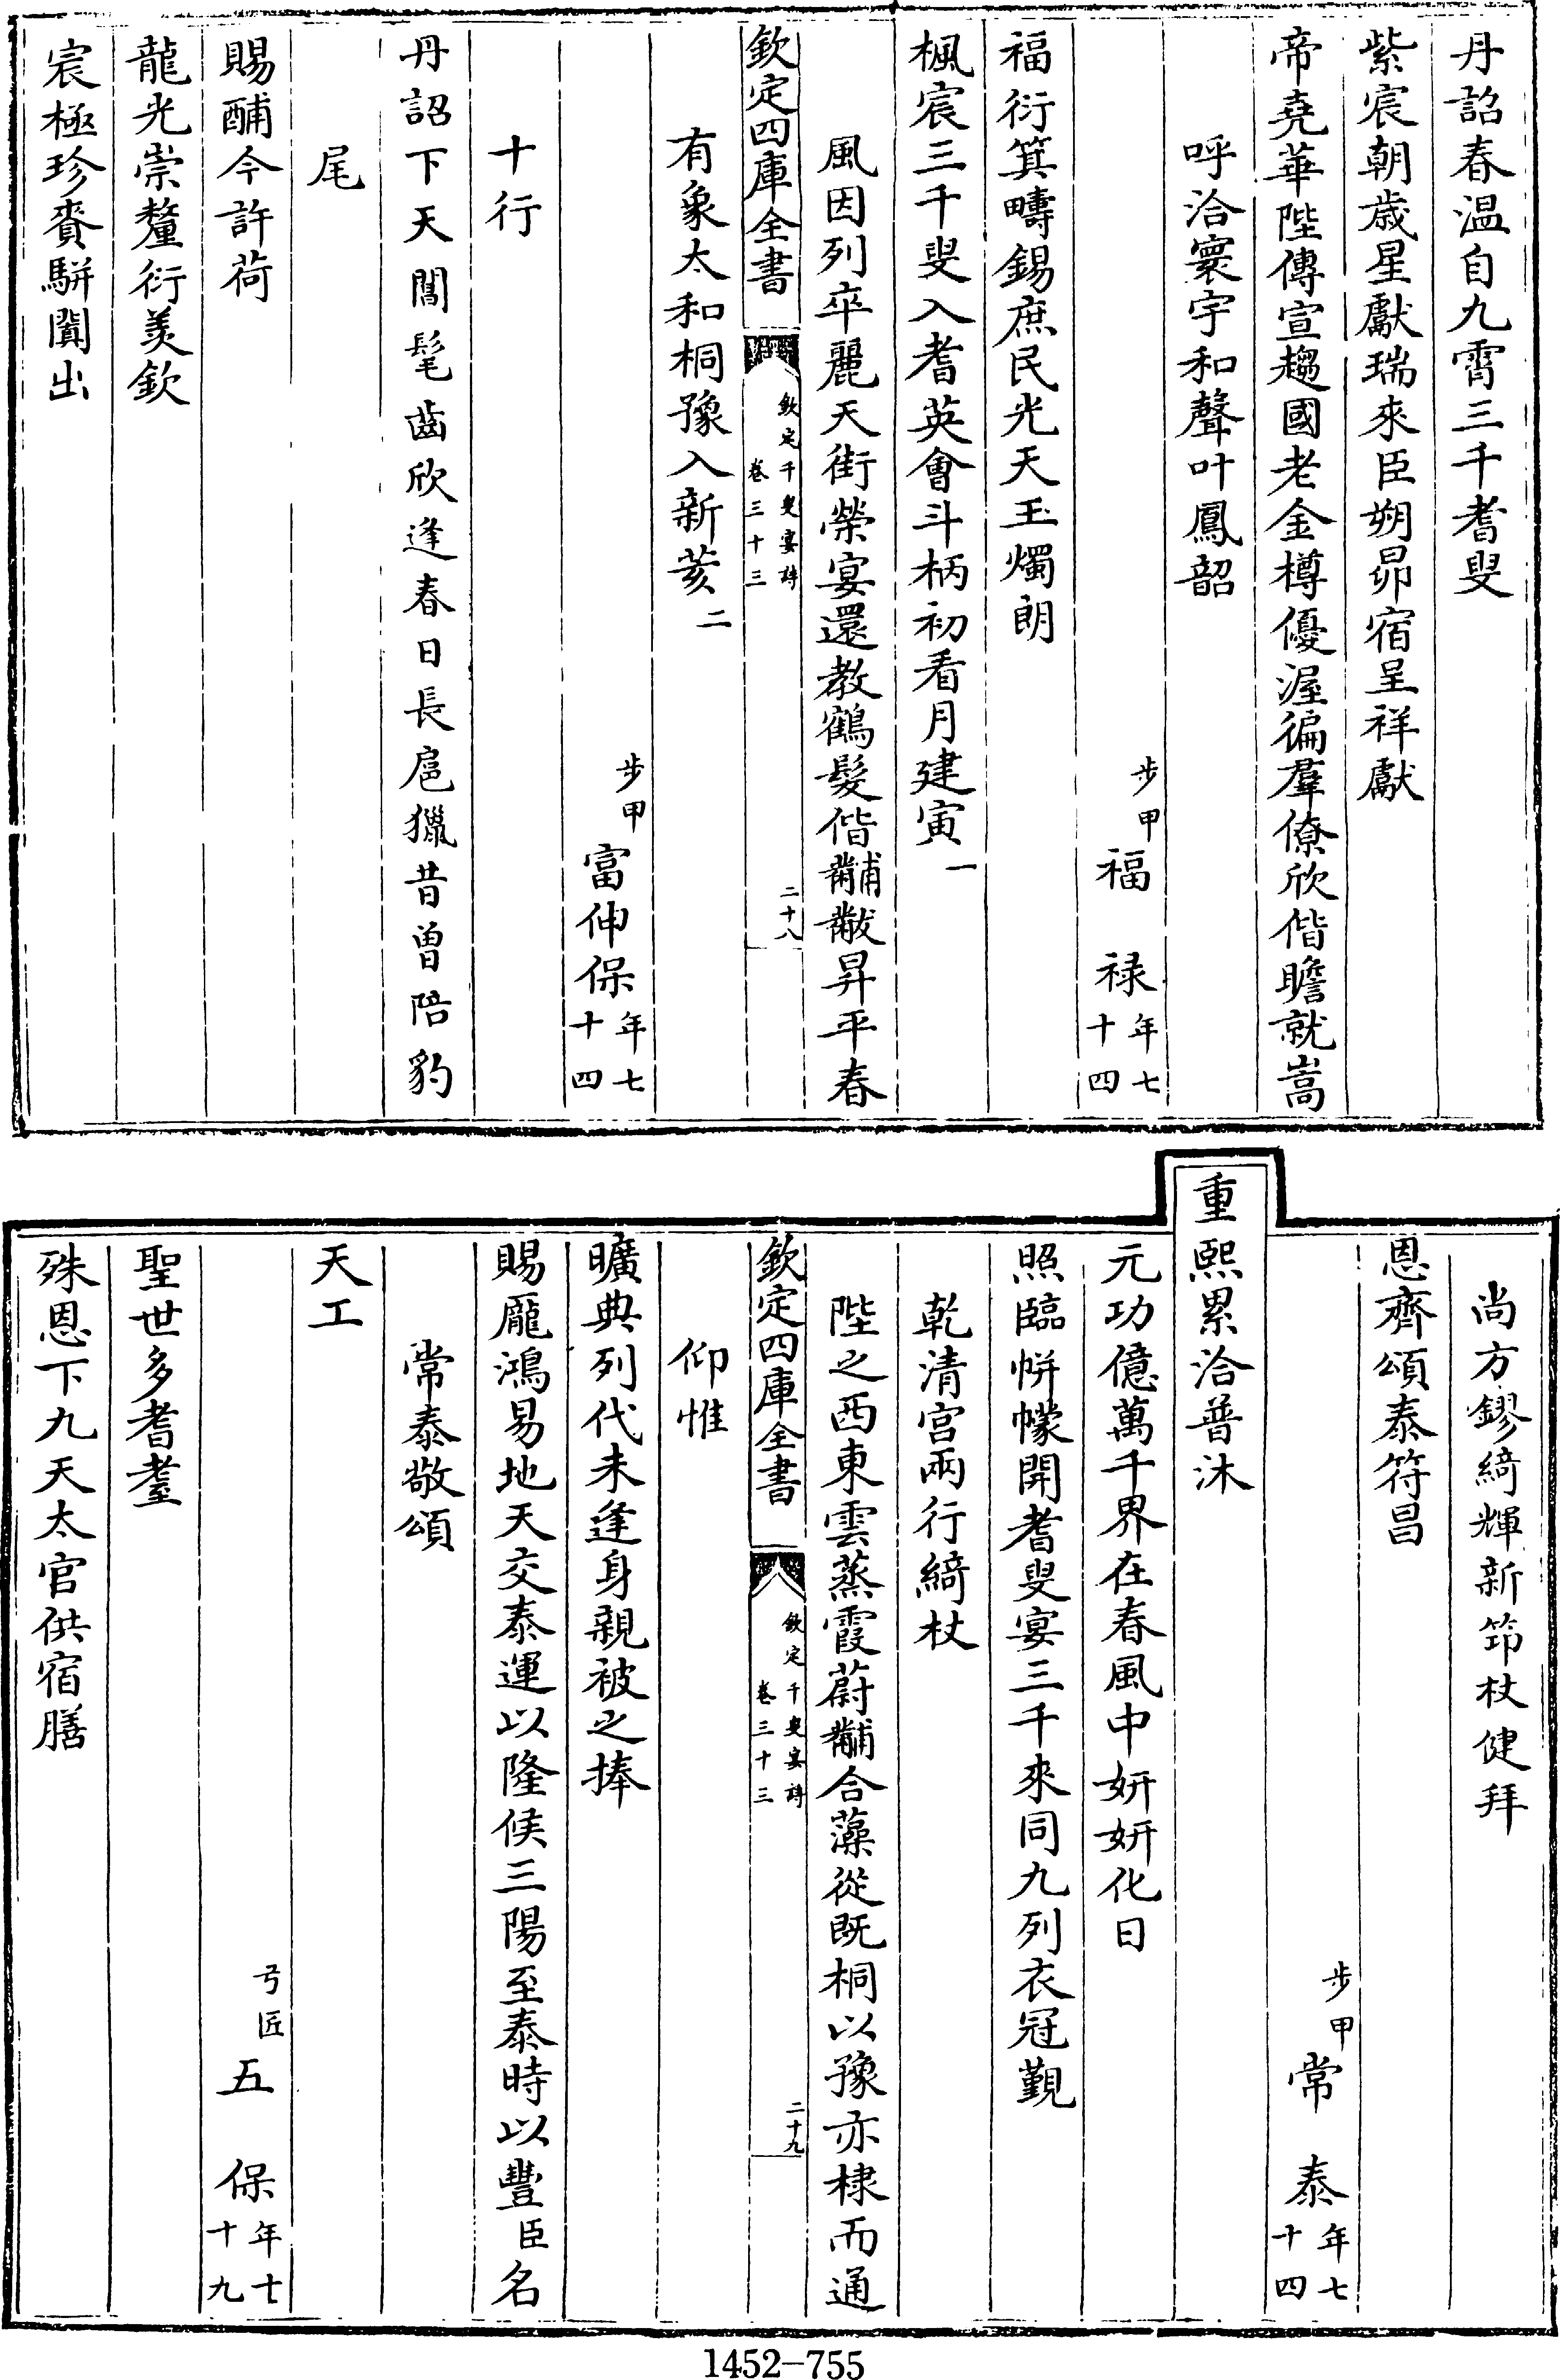 丹詔春温自九霄三千耆叟
紫宸朝歳星獻瑞來臣朔昴宿呈祥獻
帝堯華陛傳宣趨國老金樽優渥徧羣僚欣偕瞻就嵩
呼洽寰宇和聲叶鳳韶
步甲福祿年七十四
福衍箕疇錫庶民光天玉燭朗
楓宸三千叟入耆英會斗柄初看月建寅一
風因列卒麗天街榮宴還教鶴髮偕黼黻昇平春
欽定四庫全書
欽定千叟宴詩
卷三十三
二十八
有象太和桐豫入新荄二
步甲富伸保年七十四
十行
丹詔下天閶髦齒欣逢春日長扈獵昔曽陪豹
尾
賜酺今許荷
龍光崇釐衍羨欽
宸極珍賚駢闐出
尚方鏐綺輝新笻杖健拜
恩齊頌泰符昌
步甲常泰年七十四
重熙累洽普沐
元功億萬千界在春風中妍妍化日
照臨帡幪開耆叟宴三千來同九列衣冠覲
乾清宫兩行綺杖
陛之西東雲蒸霞蔚黼合藻從既桐以豫亦棣而通
欽定四庫全書
欽定千叟宴詩
卷三十三
二十九
仰惟
曠典列代未逢身親被之捧
賜龎鴻易地天交泰運以隆候三陽至泰時以豐臣名
常泰敬頌
天工
弓匠五保年七十九
聖世多耆耋
殊恩下九天太官供宿膳
1452-755